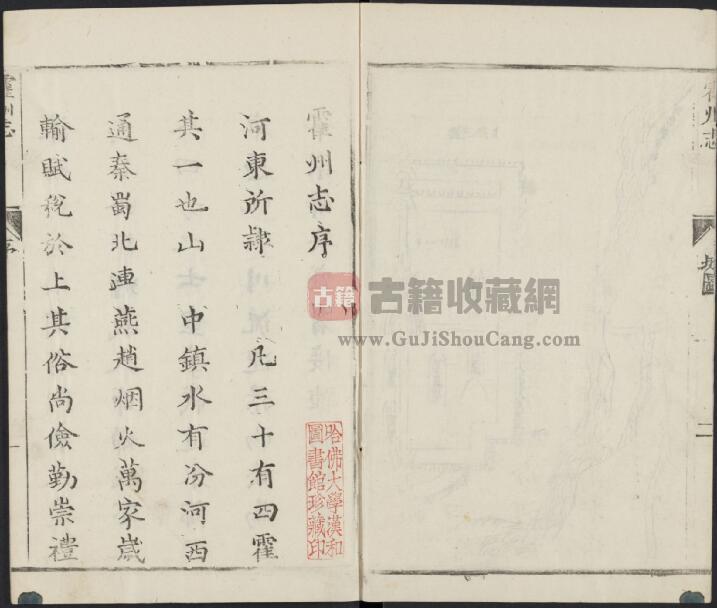 霍州志
圖
二
霍州志序
河東所隸凡三十有四霍
其一也山中鎮水有汾河西
通秦蜀北連燕趙烟火萬家歲
輸賦稅於上其俗尚儉勤崇禮
霍州志
序
一
哈佛大學漢和
圖書館珍藏印
古籍
古籍收藏網
www.GuJiShouCang.com